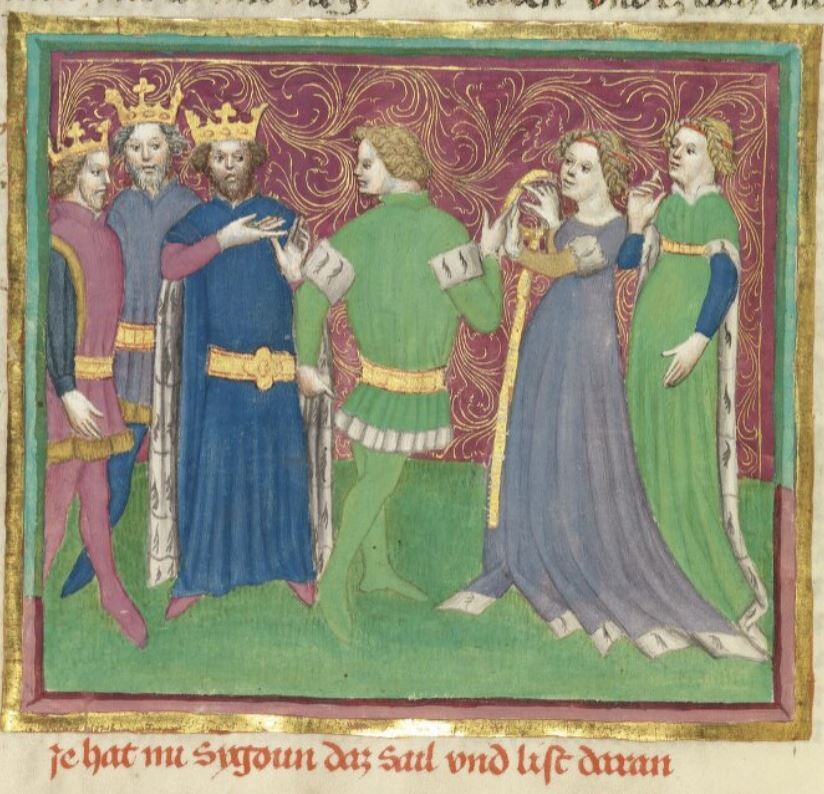 Je hat nu Sygoun daz Sail vnd list daran